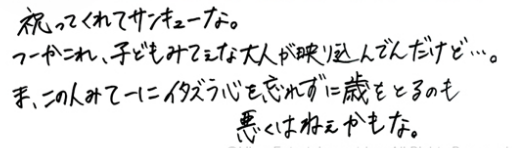 祝ってくれてサンキューな。
つーかこれ、子どもみてぇな大人が映り込んでんだけど…。
ま、この人みてーにイタズラ心を忘れずに歳をとるのも
悪くはねぇかもな。